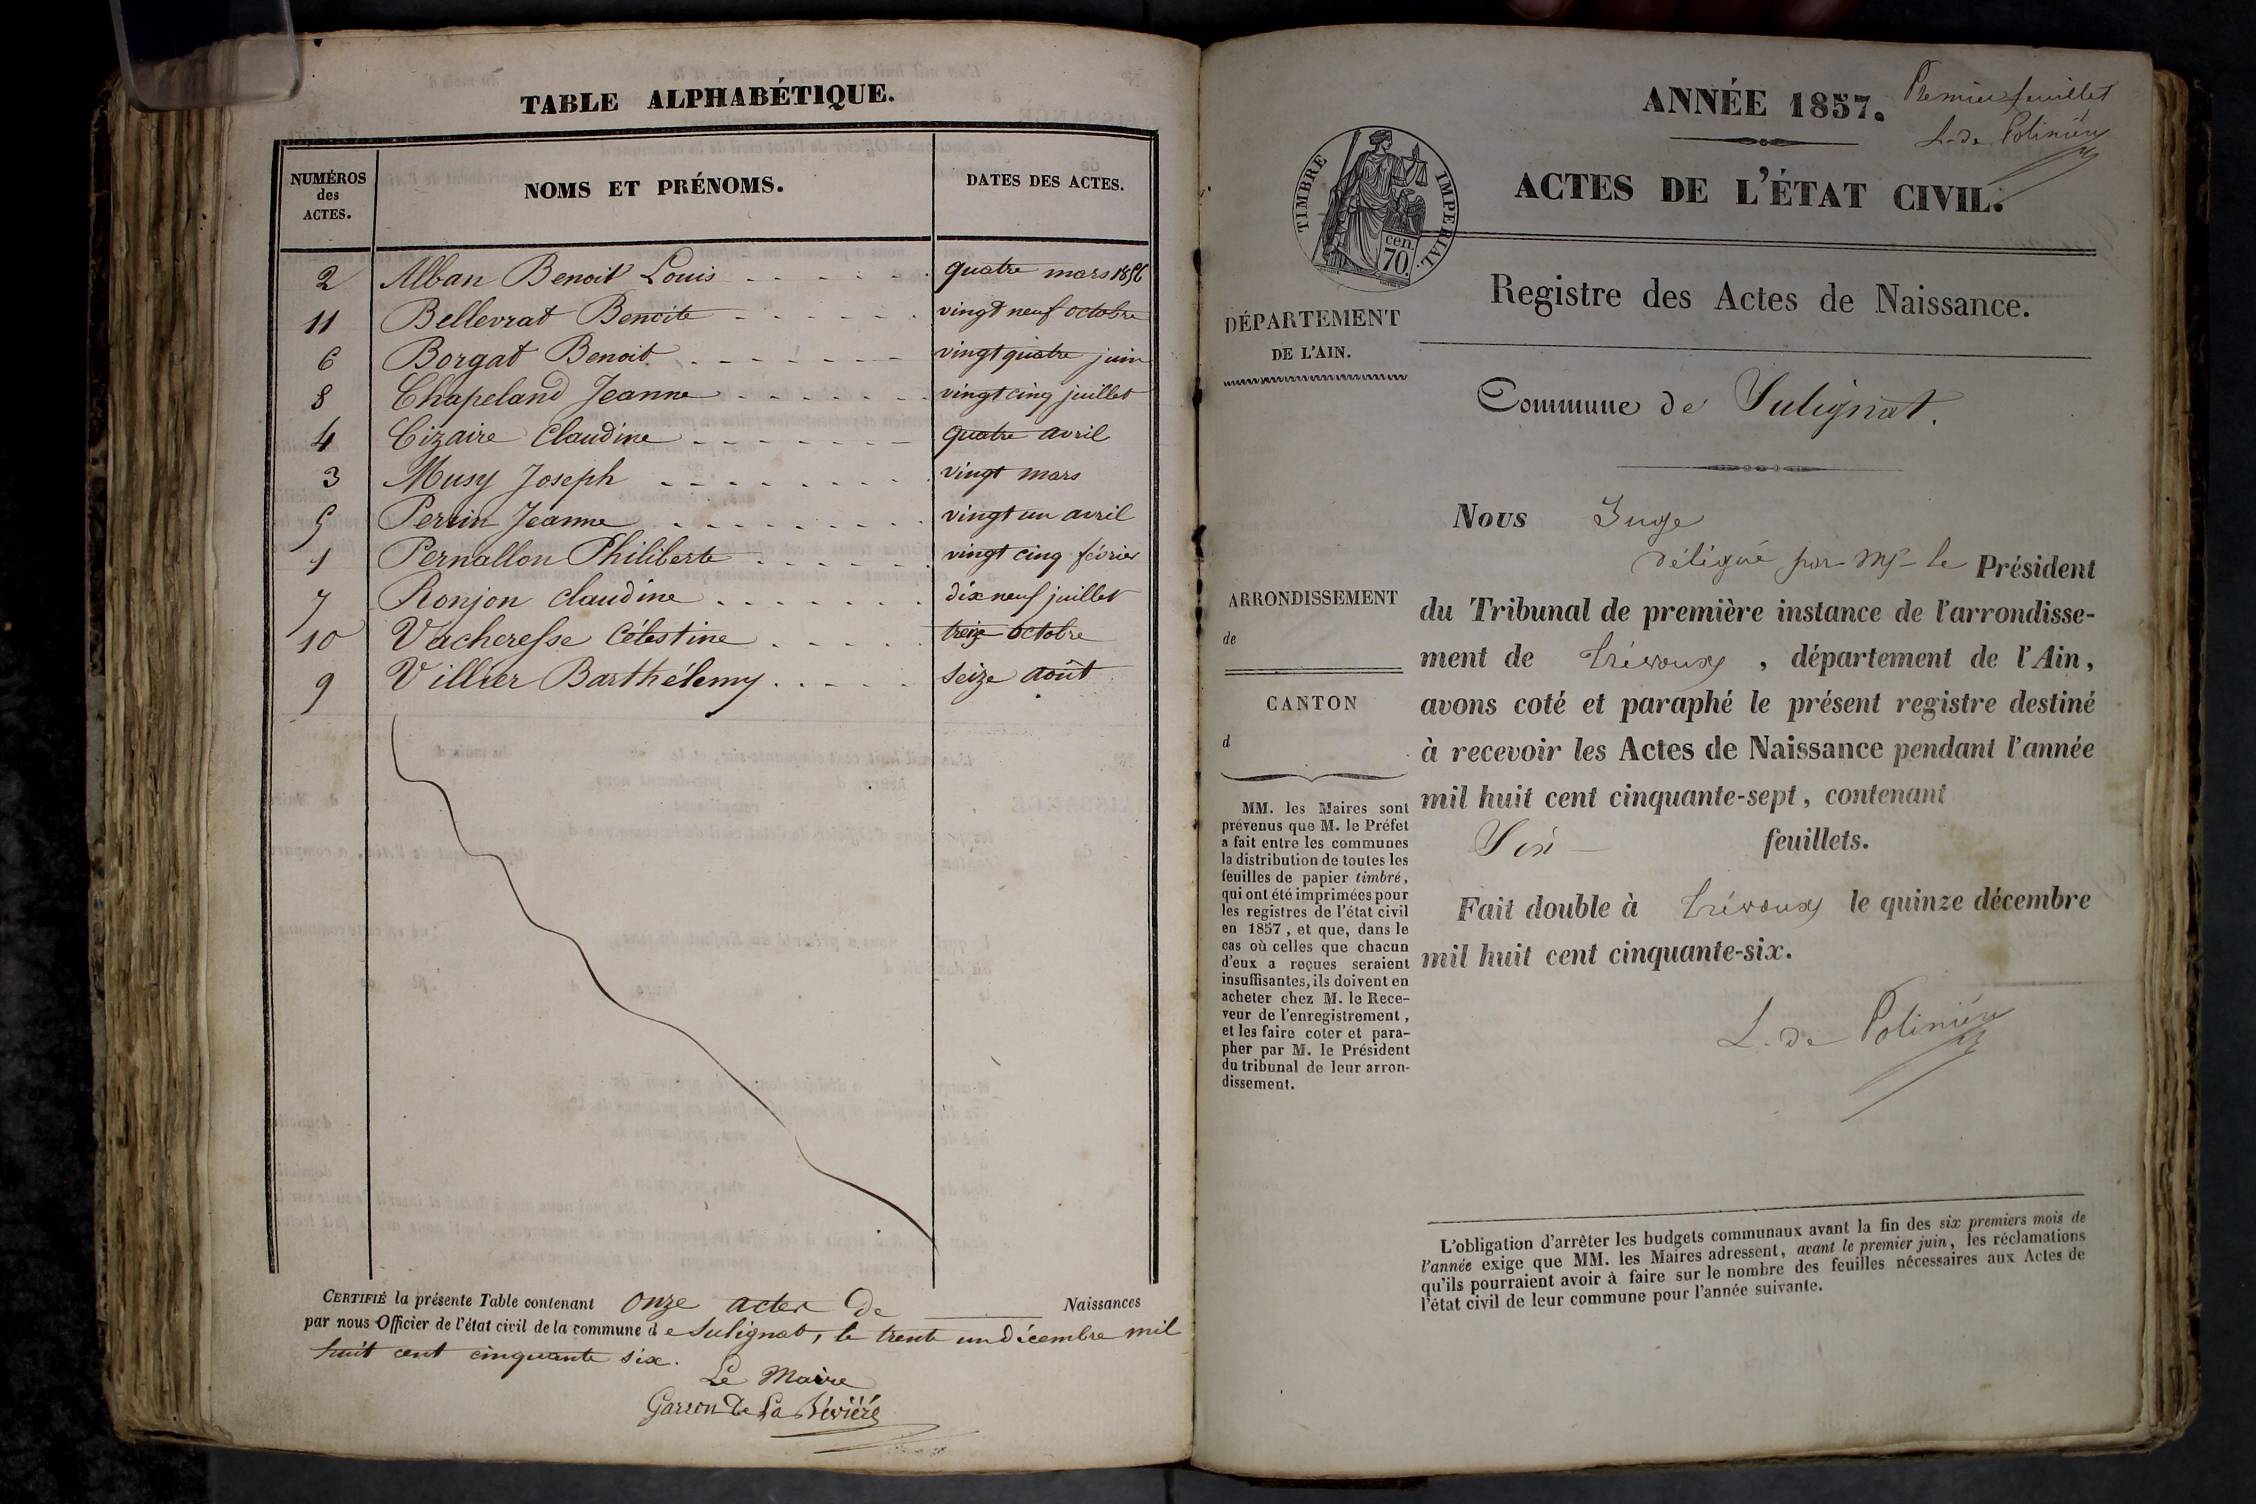 TABLE ALPHABÉTIQUE.
NUMÉROS des ACTES. NOMS ET PRÉNOMS. DATES DES ACTES.
2 Alban Benoit Louis quatre mars 1856
11 Bellevrat Benoite vingt neuf octobre
6 Borgat Benoit vingt quatre juin
8 Chapeland Jeanne vingt cinq juillet
4 Cizaire Claudine quatre avril
3 Musy Joseph vingt mars
5 Perrin Jeanne vingt un avril
1 Pernallon Philiberte vingt cinq février
7 Ronjon Claudine dix neuf juillet
10 Vacheresse Célestine treize octobre
9 Villier Barthélemy seize août
CERTIFIÉ la présente Table contenant onze actes de Naissances
par nous Officier de l'état civil de la commune de Sulignat, le trente un décembre mil
huit cent cinquante six.
Le Maire
Garron de La Bévière
ANNÉE 1857.
Premier feuillet
L. de Polinière
TIMBRE IMPERIAL.
cen.
70.
ACTES DE L'ÉTAT CIVIL.
Registre des Actes de Naissance.
DÉPARTEMENT
DE L'AIN.
Commune de Sulignat.
ARRONDISSEMENT
de
CANTON
d
MM. les Maires sont
prévenus que M. le Préfet
a fait entre les communes
la distribution de toutes les
feuilles de papier timbré,
qui ont été imprimées pour
les registres de l'état civil
en 1857, et que, dans le
cas où celles que chacun
d'eux a reçues seraient
insuffisantes, ils doivent en
acheter chez M. le Rece-
veur de l'enregistrement,
et les faire coter et para-
pher par M. le Président
du tribunal de leur arron-
dissement.
Nous Juge
délégué par Mr le Président
du Tribunal de première instance de l'arrondisse-
ment de Trévoux, département de l'Ain,
avons coté et paraphé le présent registre destiné
à recevoir les Actes de Naissance pendant l'année
mil huit cent cinquante-sept, contenant
Six feuillets.
Fait double à Trévoux le quinze décembre
mil huit cent cinquante-six.
L. de Polinière
L'obligation d'arrêter les budgets communaux avant la fin des six premiers mois de
l'année exige que MM. les Maires adressent, avant le premier juin, les réclamations
qu'ils pourraient avoir à faire sur le nombre des feuilles nécessaires aux Actes de
l'état civil de leur commune pour l'année suivante.